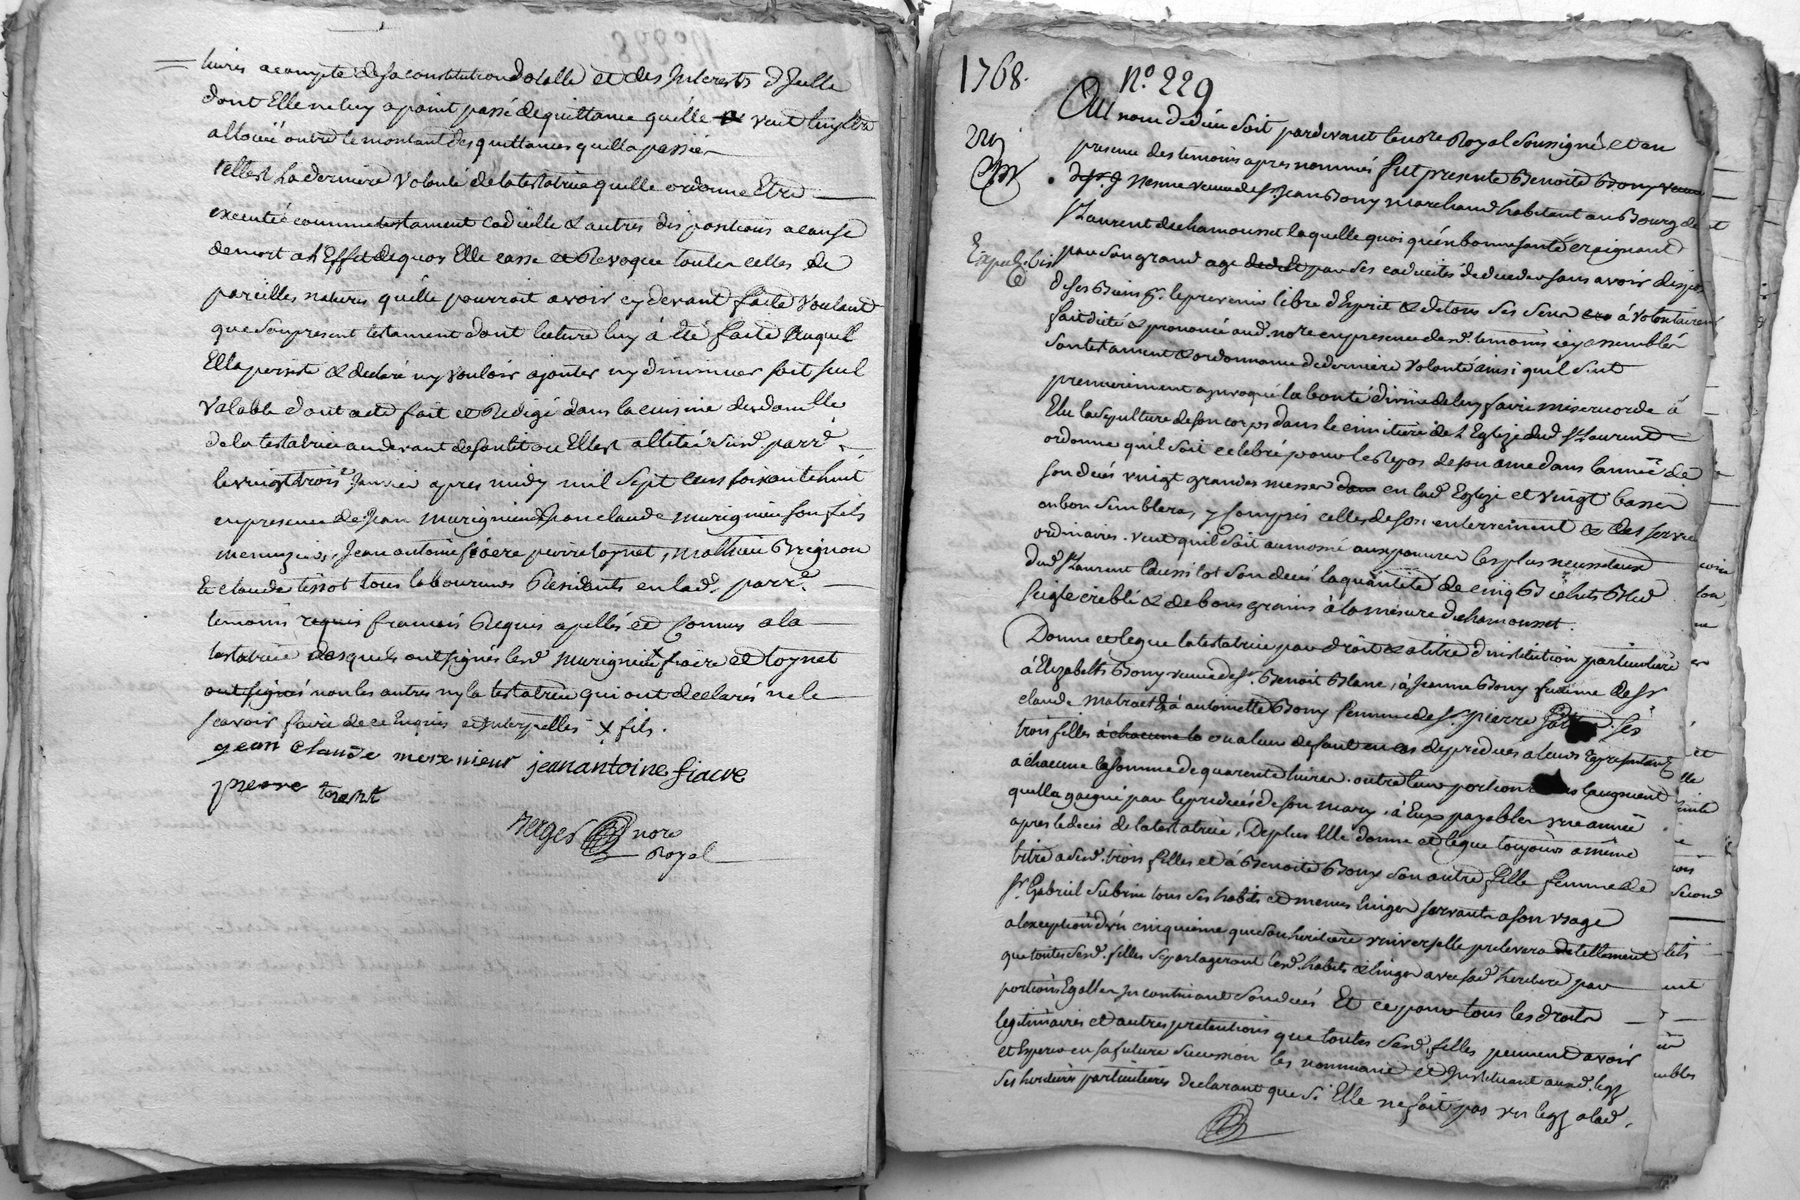 livres acompte desa constitution dotalle et des Interests d'Icelle
dont Elle ne luy a point passé de quittance qu'elle veut luy être
allouée outre le montant des quittances quella passée
telle est la derniere volonté de la testatrice quelle ordonne Etre
executée comme testament codicille & autres dispositions a cause
demort a l'Effet dequoy Elle casse et Revoque toutes celles de
pareilles natures qu'elle pourroit avoir cy devant faite voulant
que son present testament dont lecture luy à été faite Auquel
Ella persisté & declaré n'y vouloir ajouter ny diminuer soit seul
valable dont acte fait et Redigé dans la cuisine du domicille
de la testatrice au devant de son lit ou Elle est allitée susd. parr.e
le vingt trois.e Janvier apres midy mil sept cens soixante huit
en presence de Jean Murignieu & Jean claude murignieu son fils
menuziers, Jean antoine fiacre pierre toynet, mathieu Brignon
Et claude tissot tous laboureurs Residents en lad. parr.e
temoins requis francois Requis apellés et Connus a la
testatrice desquels ont signés lesd. Murignieu x fiacre et toynet
ont signés non les autres ny la testatrice qui ont declarés ne le
scavoir faire de ce Enquis et Interpellés x fils.
jean Claude mexnieur jeanantoine fiacre
pierre toynet
Berges nore
Royal
1768. No. 229
Au nom de dieu soit pardevant le nore Royal soussigné et en
presence des temoins apres nommés fut presente Benoite Bony veuve
Nesme veuve de sr. Jean Bony marchand habitant au Bourg de st
Laurent de chamousset laquelle quoi qu'en bonne santé craignant
Exped. bis
par son grand age et par ses caducités de deceder sans avoir disposé
de ses Biens pr. le prevenir libre d'Esprit & de tous ses sens à volontairement
fait dicté & prononcé aud. nore en presence desd. temoins icy assemblés
son testament & ordonnance de derniere volonté ainsi quil suit
premierement a invoqué la bonté divine de luy faire misericorde à
Elu la sepulture de son corps dans le cimitiere de l'Eglize dud. st Laurent
ordonne qu'il soit celebré pour le Repos de son ame dans l'année de
son decés vingt grandes messes en lad. Eglize et vingt basses
ou bon semblera, y compris celles de son enterrement & des services
ordinaires. veut qu'il soit aumosné aux pauvres les plus necessiteux
dud. st Laurent aussitot son decés la quantité de cinq Bichets Bled
seigle criblé & de bons grains à la mesure de chamousset.
Donne et legue la testatrice par droit & a titre d'institution particuliere
à Elizabeth Bony veuve de sr. Benoit Blanc, à Jeanne Bony femme de sr
claude Matraet & à antoinette Bony femme de sr. pierre ses
trois filles à chacune la ou a leur defaut en cas de predeces a leurs representants
a chacune la somme de quarente livres. outre leur portion laugment
quella gagné par le predecés de son mary, à Eux payables une année
apres le decés de la testatrice, De plus Elle donne et legue toujours a même
titre a sesd. trois filles et à Benoite Bony son autre fille femme de
sr. Gabriel Subrin tous ses habits et menus linges servants a son usage
a l'exception d'un cinquieme que son heritiere universelle prelevera de tellement
que toutes sesd. filles separtageront lesd. habits & linges avec sad. heritiere par
portions Egalles Incontinant son decés Et ce pour tous les droits
legitimaires et autres pretentions que toutes sesd. filles peuvent avoir
et Esperer en sa future succession les nommant et Instituant auxd. legs
ses heritieres particulieres declarant que si Elle ne fait pas un legs a lad.